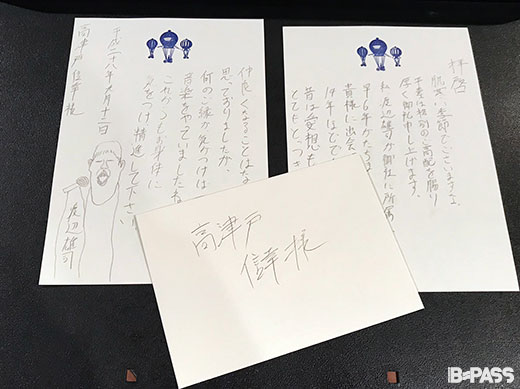 拝啓
肌寒い季節でございますな。
平素は格別のご高配を賜り
厚く御礼申し上げます。
私、渡辺雄司が御社に所属
早6年がたち
皆様に出会
19年ほどで
昔は愛想も
とても
仲良くなることはな
思っておりましたが、
何のご縁か気がつけば
音楽をやっていましたね
これからもお身体に
気をつけ精進して下さい
平成二十八年九月十二日
渡辺雄司
高津戸信幸様
高津戸
信幸様
B-PASS